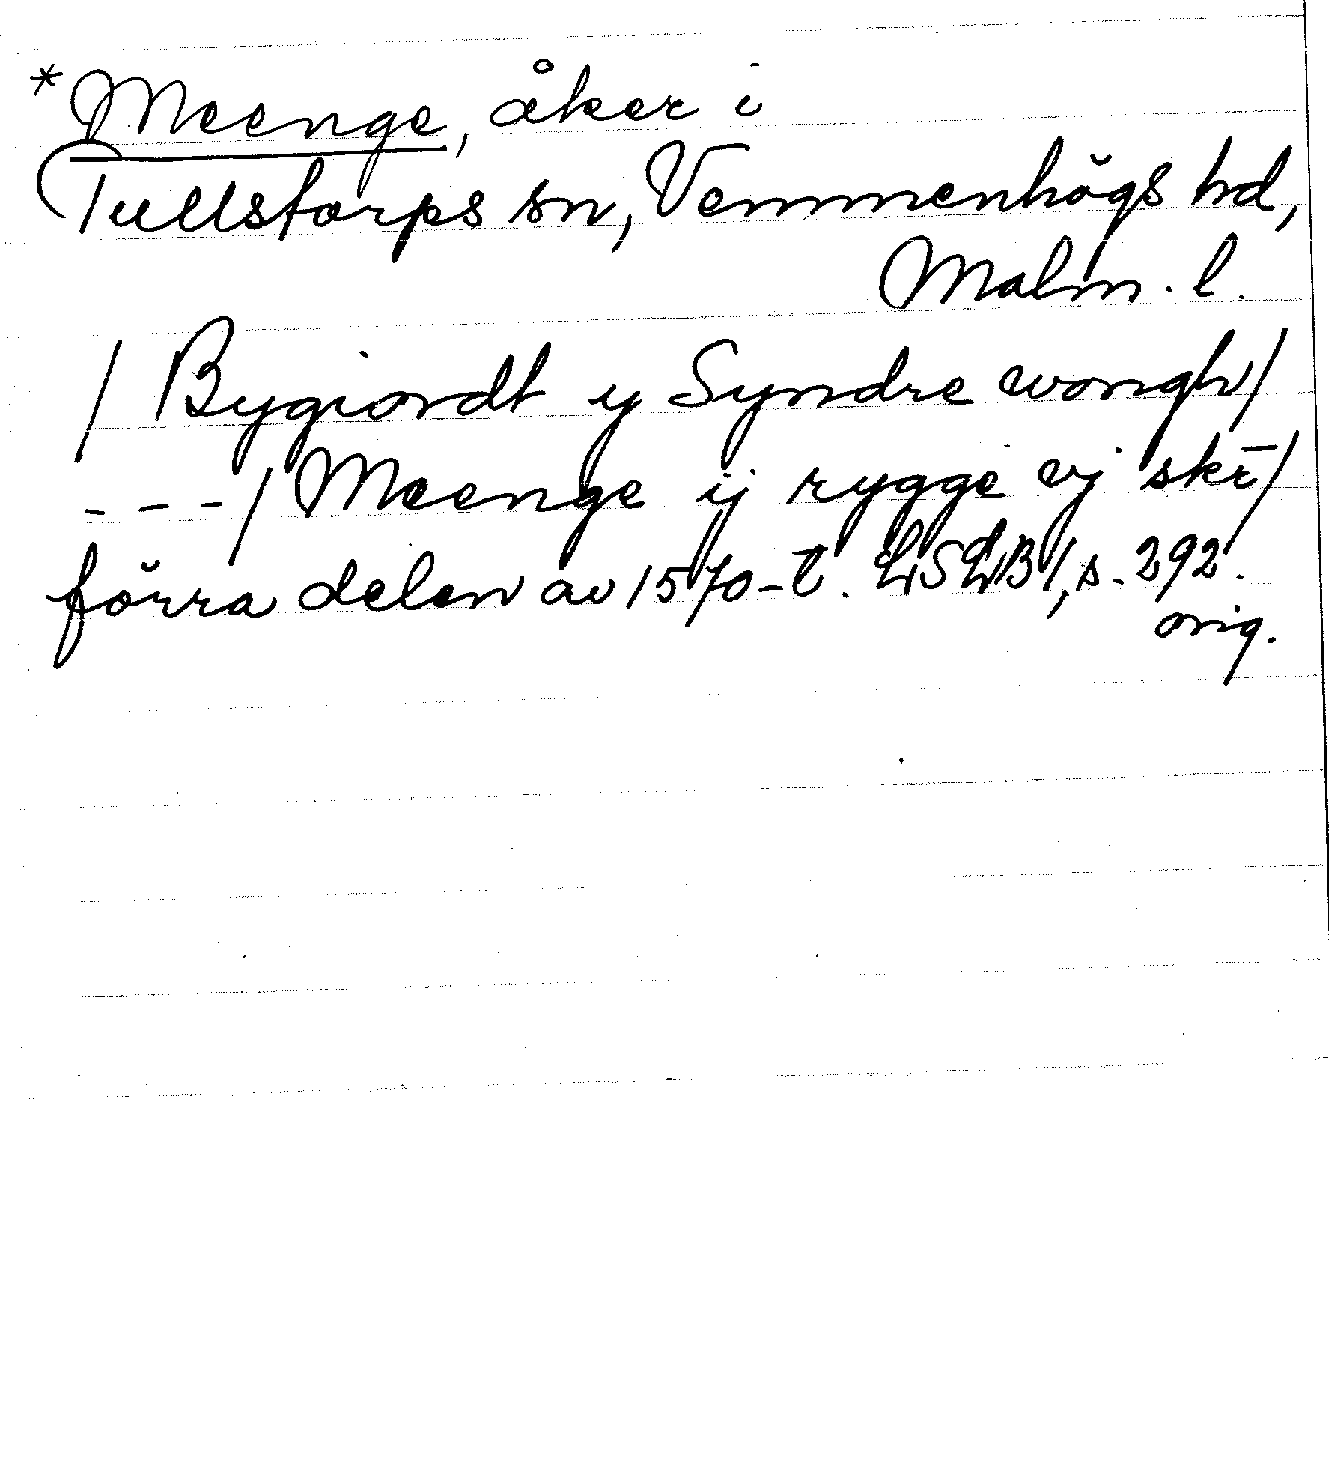 *Meenge, åker i
Tullstorps sn, Vemmenhögs hd,
Malm. l.
/ Bygiordt y Syndre wongh/
- - -/ Meenge ij rygge vj skē/
förra delen av 1570-t. LSLB I, s. 292.
orig.